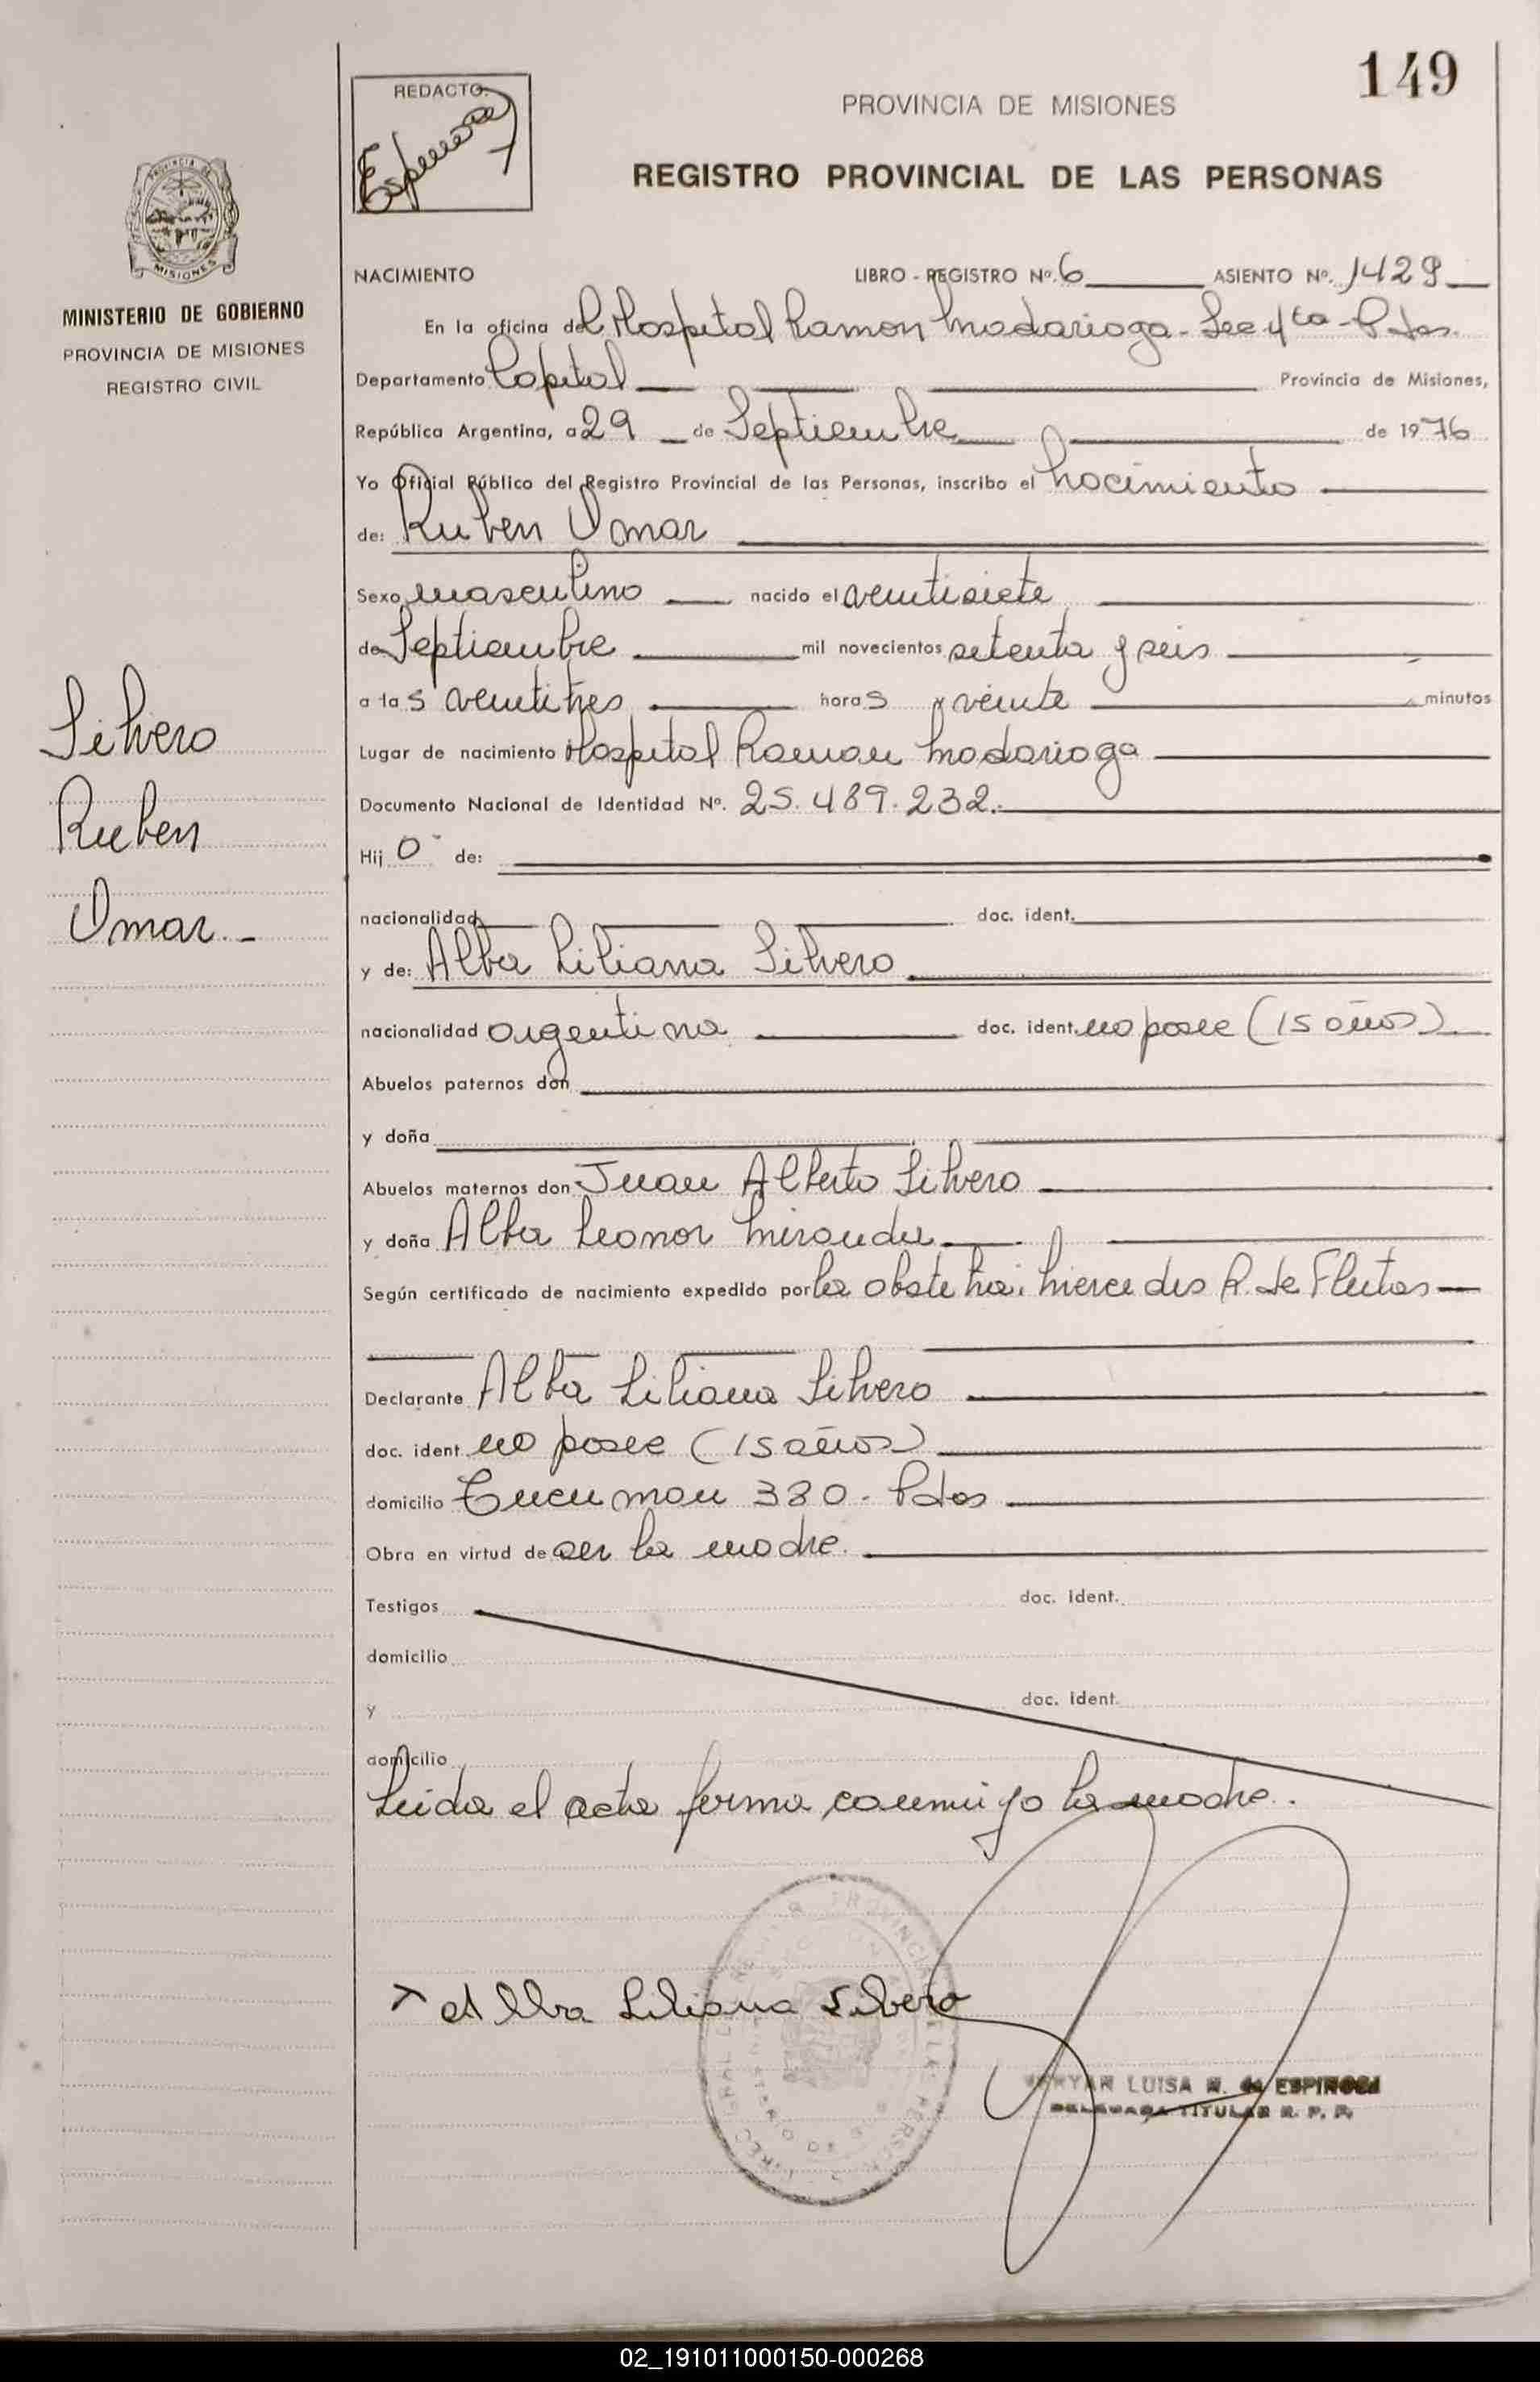 149
REDACTO:
Espinosa
PROVINCIA DE MISIONES
REGISTRO PROVINCIAL DE LAS PERSONAS
PROVINCIA DE
MISIONES
MINISTERIO DE GOBIERNO
PROVINCIA DE MISIONES
REGISTRO CIVIL
NACIMIENTO LIBRO - REGISTRO Nº. 6 ASIENTO Nº. 1429
En la oficina del Hospital Ramon Madariaga - Sec 4ta - Pdas.
Departamento Capital Provincia de Misiones,
República Argentina, a 29 de Septiembre de 1976
Yo Oficial Público del Registro Provincial de las Personas, inscribo el nacimiento
de: Ruben Omar
Sexo masculino nacido el veintisiete
de Septiembre mil novecientos setenta y seis
a las veintitres horas y veinte minutos
Lugar de nacimiento Hospital Ramon Madariaga
Documento Nacional de Identidad Nº. 25.489.232.
Hijo de:
nacionalidad doc. ident.
y de: Alba Liliana Silvero
nacionalidad argentina doc. ident. no posee (15 años)
Abuelos paternos don
y doña
Abuelos maternos don Juan Alberto Silvero
y doña Alba Leonor Miranda
Según certificado de nacimiento expedido por la obstetra: Mercedes R. de Fleitas
Declarante Alba Liliana Silvero
doc. ident no posee (15 años)
domicilio Tucuman 380 - Pdas
Obra en virtud de ser la madre.
Testigos doc. ident.
domicilio
y doc. ident.
domicilio
Leida el acta firma conmigo la madre.
Silvero
Ruben
Omar.-
x Alba Liliana Silvero
LUISA N. de ESPINOSA
DELEGADA TITULAR R. P. P.
02_191011000150-000268